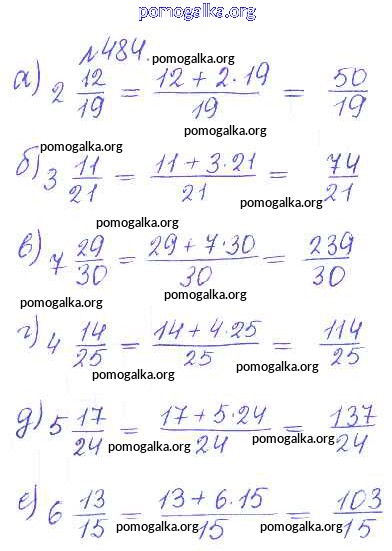 pomogalka.org
№484. pomogalka.org
а) 2 12/19 = (12 + 2 · 19)/19 = 50/19
pomogalka.org
pomogalka.org
б) 3 11/21 = (11 + 3 · 21)/21 = 74/21
pomogalka.org
pomogalka.org
в) 7 29/30 = (29 + 7 · 30)/30 = 239/30
pomogalka.org pomogalka.org
г) 4 14/25 = (14 + 4 · 25)/25 = 114/25
pomogalka.org pomogalka.org
д) 5 17/24 = (17 + 5 · 24)/24 = 137/24
pomogalka.org pomogalka.org
е) 6 13/15 = (13 + 6 · 15)/15 = 103/15
pomogalka.org pomogalka.org